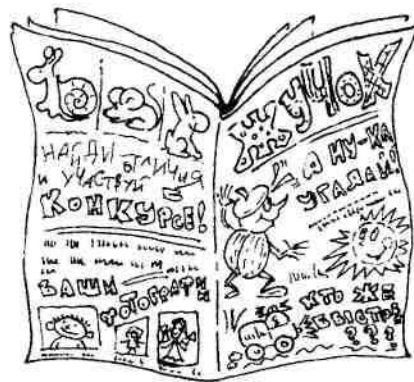 НАЙДИ ОТЛИЧИЯ
И УЧАСТВУЙ В
КОНКУРСЕ!
ВАШИ
ФОТОГРАФИИ
ЖУЧОК
А НУ-КА
УГАДАЙ!
КТО ЖЕ
???